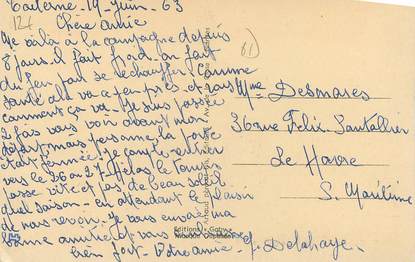 Taverne - 19 - Juin - 63
Chère Amie
Me voilà à la campagne depuis
8 jours. il fait froid. on fait
du feu pour se rechauffer. comme
santé cela va a peu près et vous
comment ça va. Je suis passée
2 fois vous voir avant mon
départ mais personne la porte
était fermée. je compte rentrer
vers le 26 ou 27. helas, le temps
passe vite et pas de beau soleil
quel saison - en attendant le plaisir
de vous revoir. Je vous envoie ma
bonne amitié et vous
bien fort. Votre amie. J. Delahaye.
Mme Desmares
36 rue Felix Santallier
Le Havre
S. Maritime
Editions « Gaby »